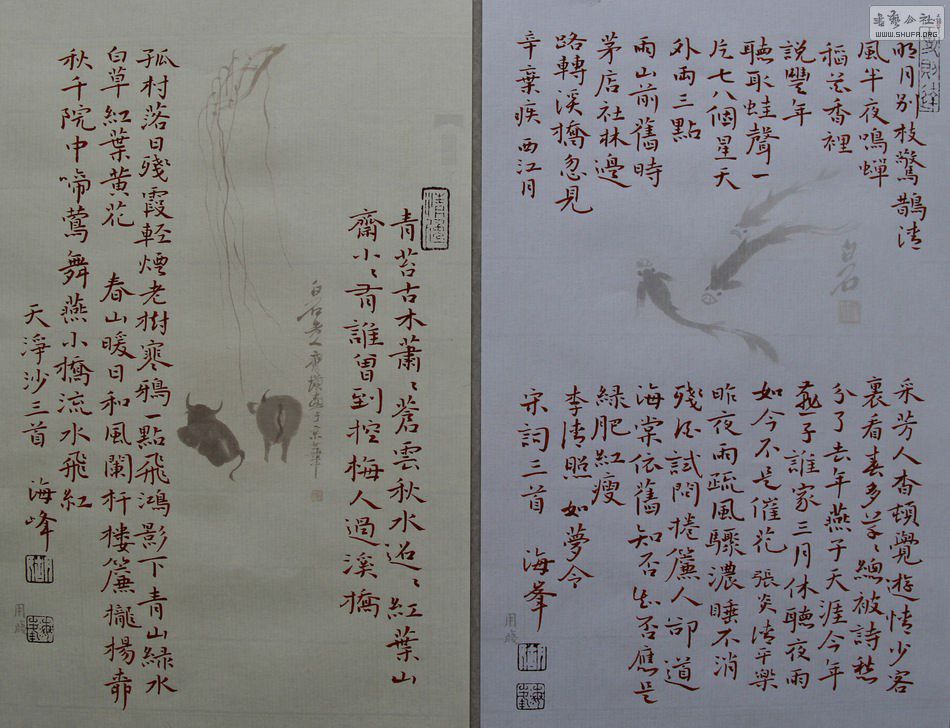 書藝公社
WWW.SHUFA.ORG
明月别枝驚鵲清
風半夜鳴蟬
稻花香裡
說豐年
聽取蛙聲一
片七八個星天
外兩三點
雨山前舊時
茅店社林邊
路轉溪橋忽見
辛棄疾 西江月
白石
采芳人杳頓覺遊情少客
裏看春多草〻總被詩愁
分了去年燕子天涯今年
燕子誰家三月休聽夜雨
如今不是催花 張炎 清平樂
昨夜雨疏風驟濃睡不消
殘酒試問捲簾人卻道
海棠依舊知否知否應是
綠肥紅瘦
李清照 如夢令
宋詞三首 海峯
用箋
青苔古木蕭〻蒼雲秋水迢〻紅葉山
齋小〻有誰曾到控梅人過溪橋
白石老人
孤村落日殘霞輕煙老樹寒鴉一點飛鴻影下青山綠水
白草紅葉黃花 春山暖日和風闌杆樓簾櫳楊柳
秋千院中啼鶯舞燕小橋流水飛紅
天淨沙三首 海峰
用箋